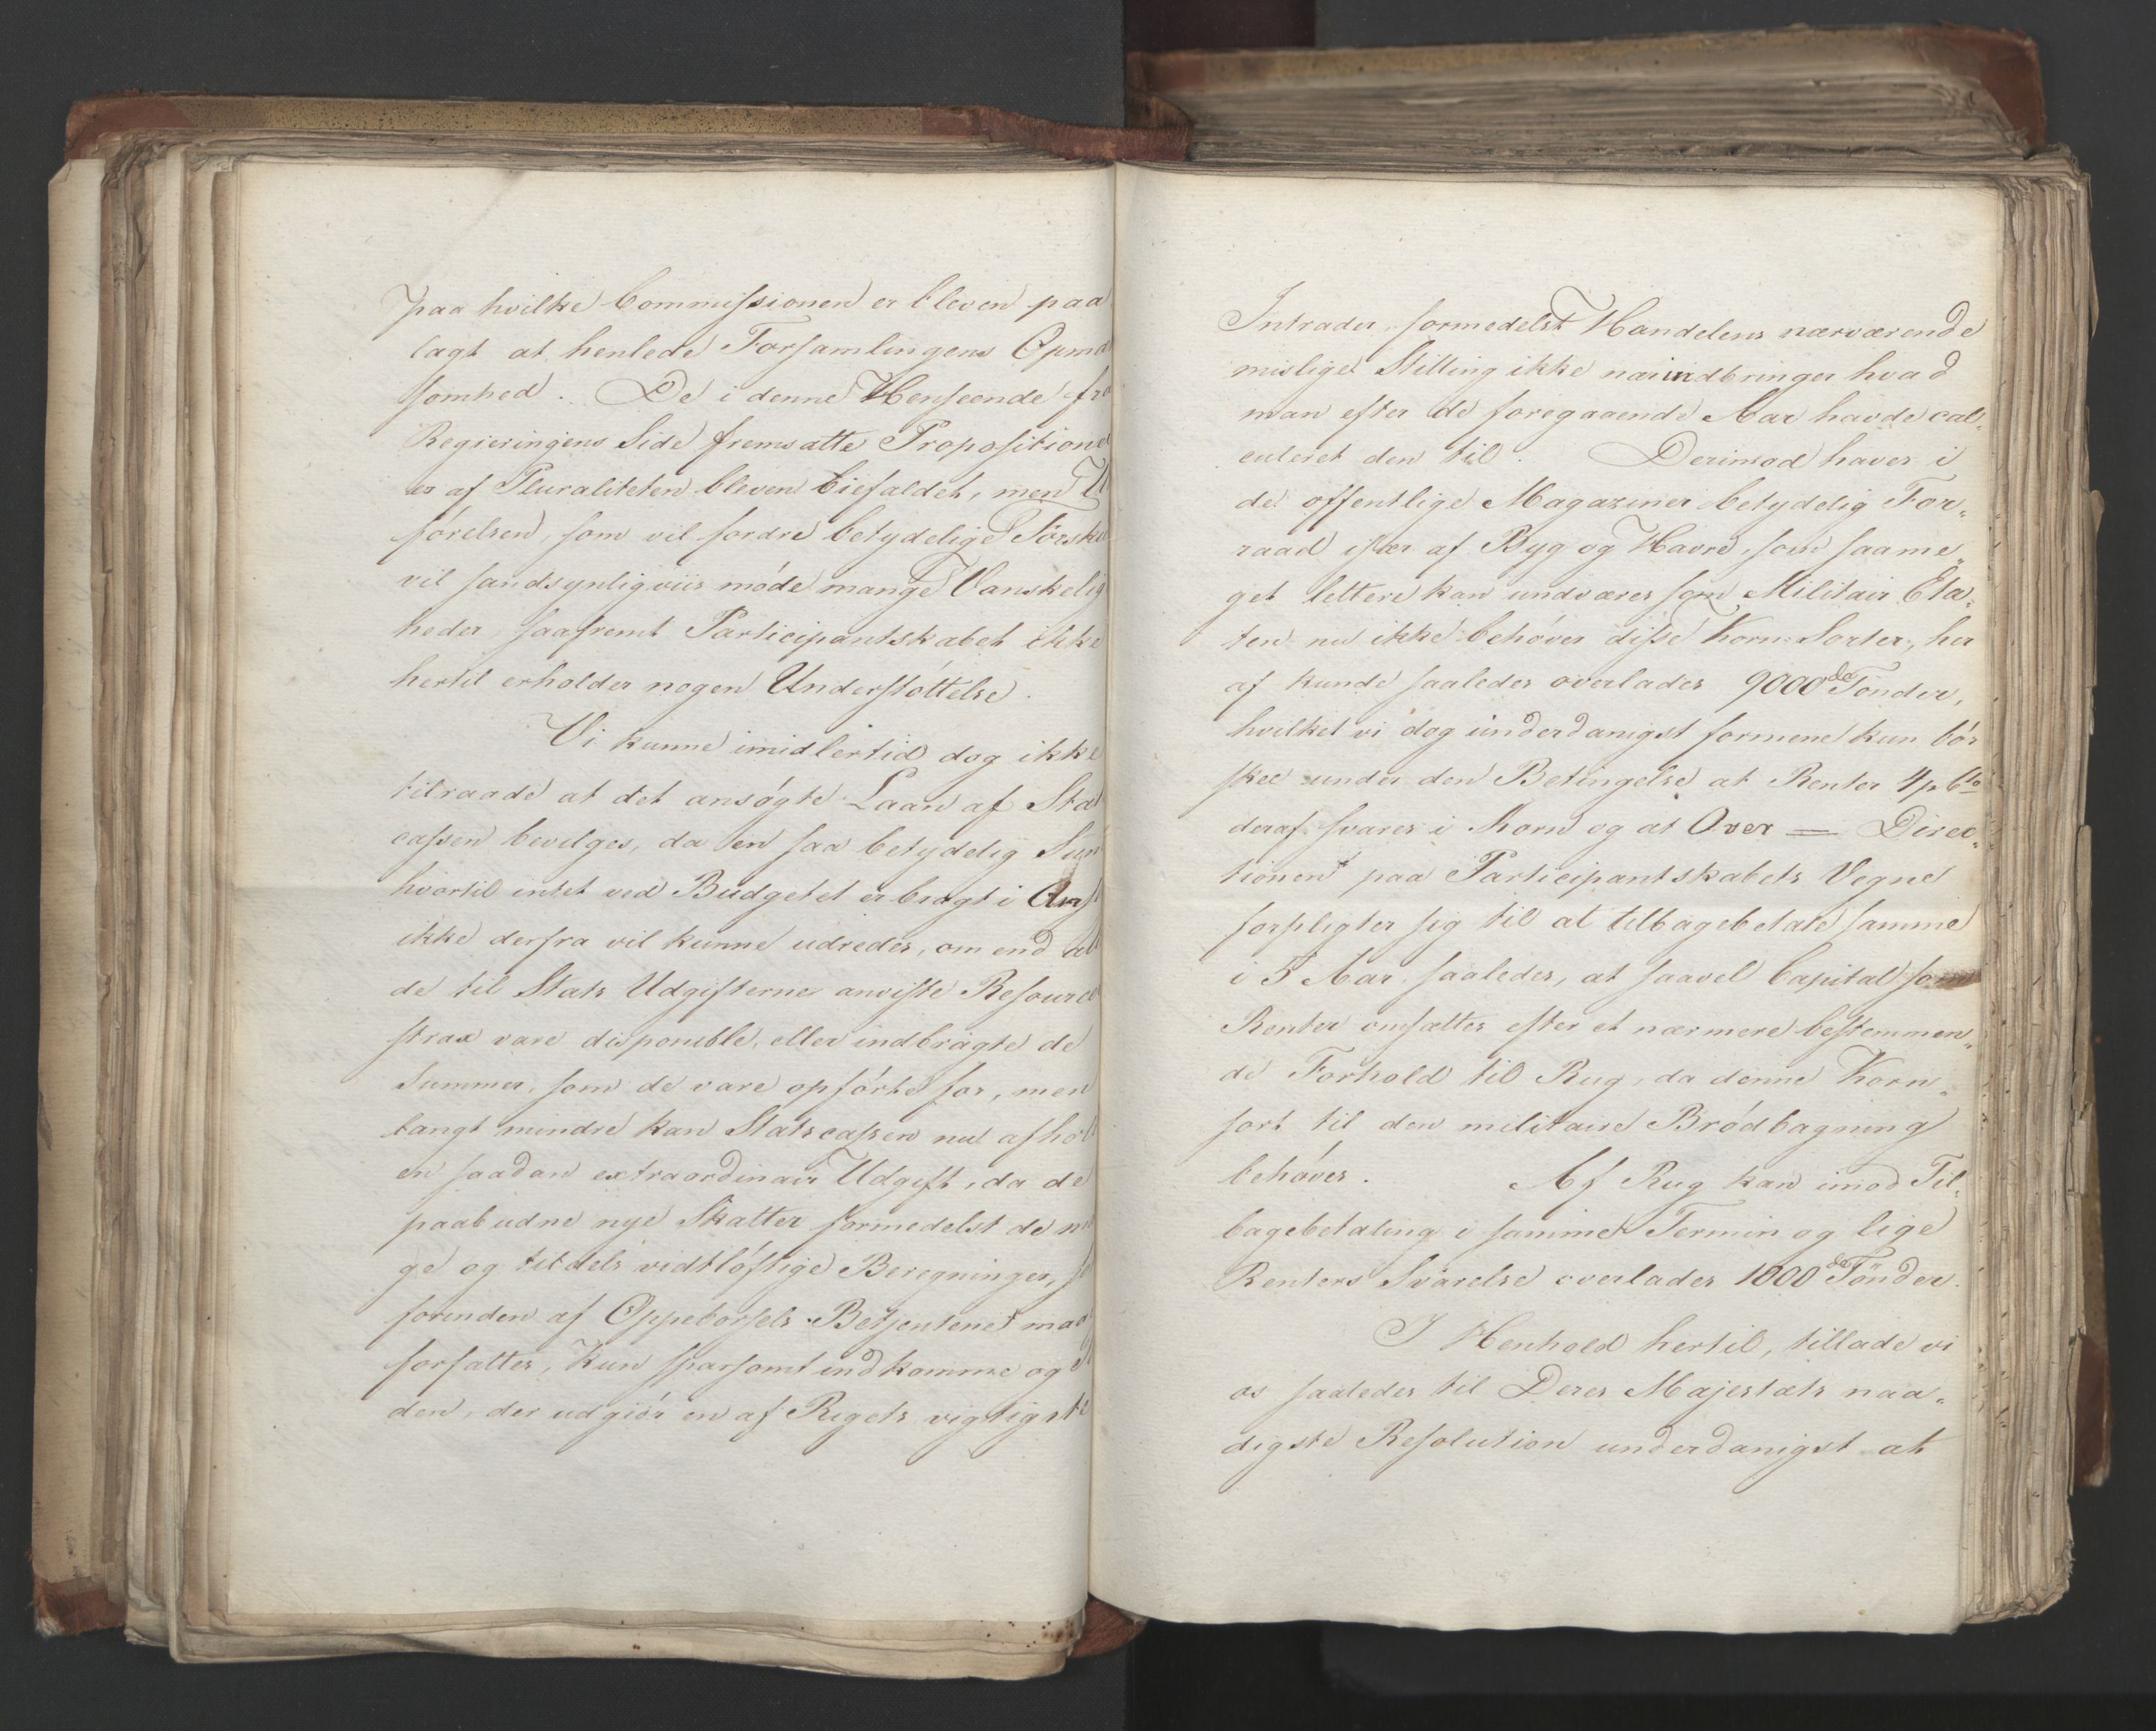 paa hvilke Commissionen er bleven paa
lagt at henlede Forsamlingens Opm
somhed. De i denne Henseende fra
Regieringens Side fremsatte Propositione
er af Pluraliteten bleven biefaldet, men U
förelsen, som vil fordre betydelige Forsku
vil sandsynligviis möde mange Vanskelig
heder, saafremt Participantskabet ikke
hertil erholder nogen Understöttelse.
Vi kunne imidlertid dog ikke
tilraade at det ansögte Laan af Stat
cassen bevilges, da en saa betydelig Sum
hvortil intet ved Budgetet er bragt i Ans
ikke derfra vil kunne udredes, om end al
de til Stats Udgifterne anviste Resource
strax vare disponible, eller indbragte de
Summer, som de vare opförte for, men
langt mindre kan Statscassen nu afhol
en saadan extraordinair Udgift, da de
paabudne nye Skatter formedelst de m
ge og tildels vidtlöftige Beregninger, s
forinden af Oppebörsels-Betjentene maa
forfattes, kun sparsomt indkomme og
den, der udgiör en af Rigets vigtigste
Intrader, formedelst Handelens nærværende
mislige Stilling ikke nær indbringer hvad
man efter de foregaaende Aar havde cal„
culeret den til. Derimod haves i
de offentlige Magaziner betydelig For„
raad især af Byg og Havre, som saame„
get lettere kan undværes som Militair Eta„
ten nu ikke behöver disse Korn-Sorter, her
af kunde saaledes overlades 9000 de Tönder,
hvilket vi dog underdanigst formene kun bör
skee under den Betingelse at Renter 4 p Cto
deraf svares i Korn og at Over = Direc„
tionen paa Participantskabets Vegne
forpligter sig til at tilbagebetale samme
i 5 Aar saaledes, at saavel Capital som
Renter omsættes efter et nærmere bestemmen„
de Forhold til Rug, da denne Korn„
sort til den militaire Brödbagning
behöves. Af Rug kan imod Til„
bagebetaling i samme Termin og lige
Renters Svarelse overlades 1000 de Tönder.
I Henhold hertil, tillade vi
os saaledes til Deres Majestæts naa„
digste Resolution underdanigst at